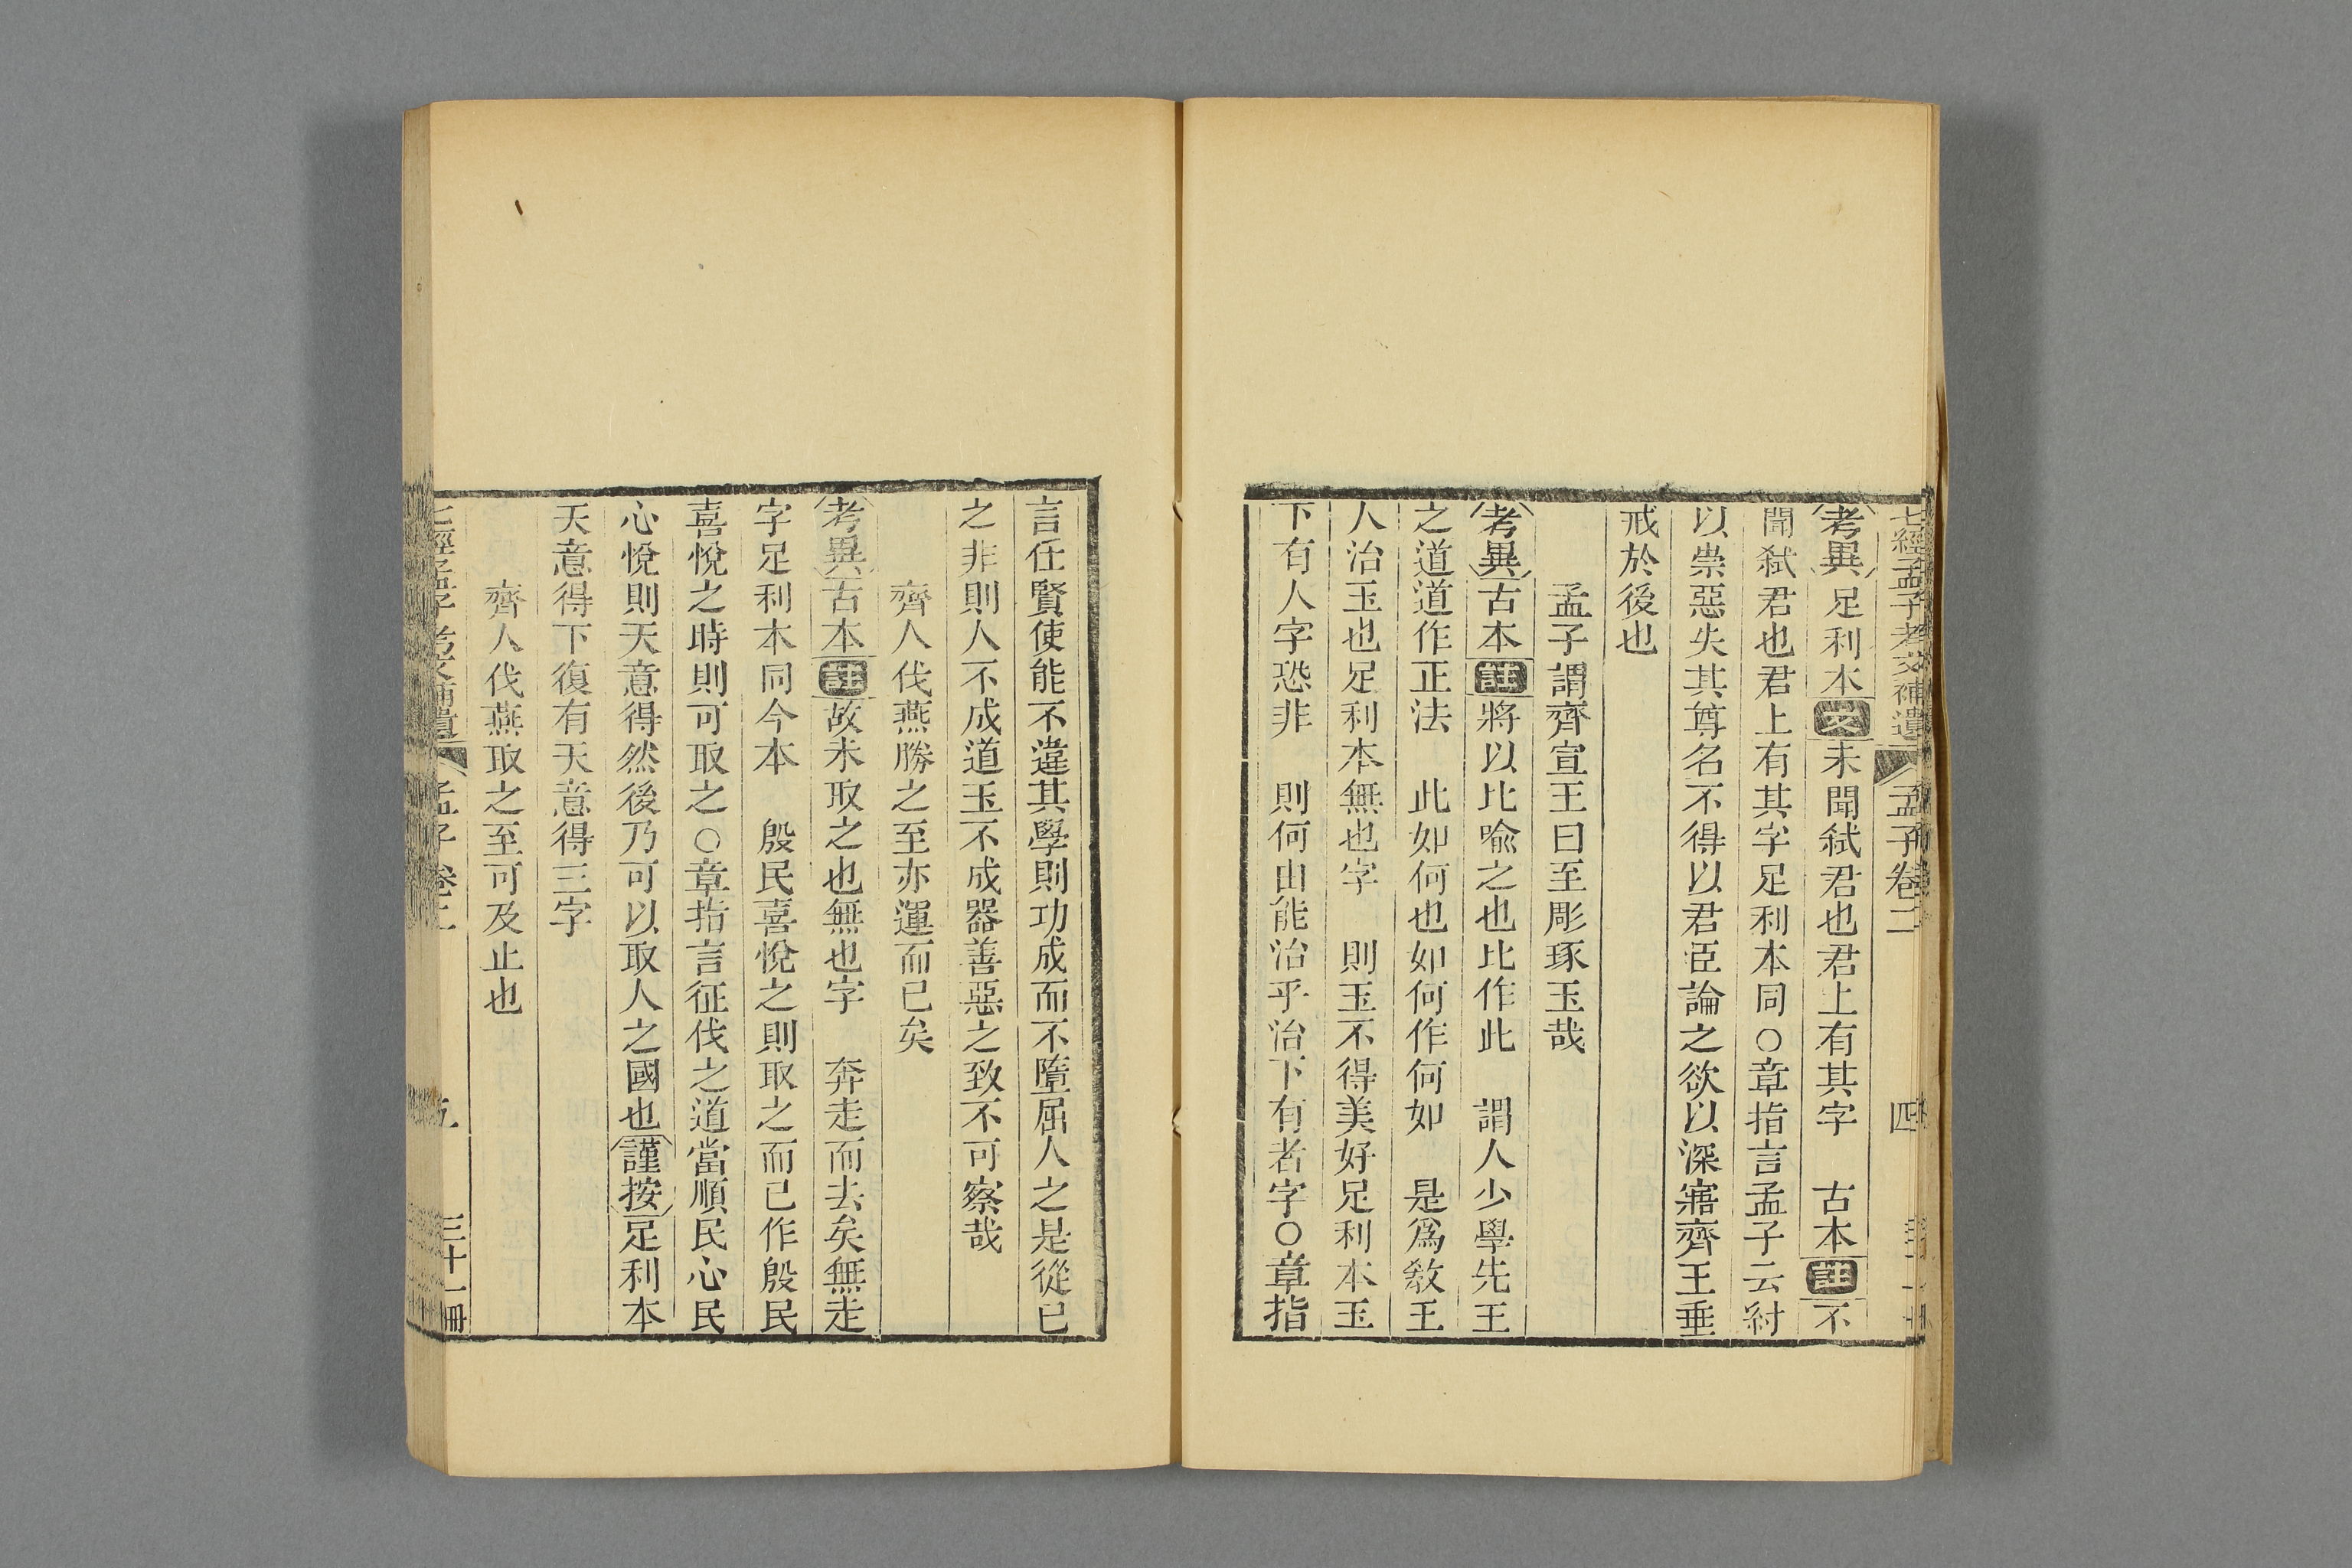 七經孟子考文補遺 孟子卷二 四
考異足利本文未聞弒君也君上有其字 古本註不
聞弒君也君上有其字足利本同〇章指言孟子云紂
以崇惡失其尊名不得以君臣論之欲以深寤齊王垂
戒於後也
孟子謂齊宣王曰至彫琢玉哉
考異古本註將以比喻之也比作此 謂人少學先王
之道道作正法 此如何也如何作何如 是爲敎王
人治玉也足利本無也字 則玉不得美好足利本玉
下有人字恐非 則何由能治乎治下有者字〇章指
言任賢使能不違其學則功成而不墮屈人之是從已
之非則人不成道玉不成器善惡之致不可察哉
齊人伐燕勝之至亦運而已矣
考異古本註故未取之也無也字 奔走而去矣無走
字足利本同今本 殷民喜悅之則取之而已作殷民
喜悅之時則可取之〇章指言征伐之道當順民心民
心悅則天意得然後乃可以取人之國也謹按足利本
天意得下復有天意得三字
齊人伐燕取之至可及止也
七經孟子考文補遺 孟子卷二 五 三十一冊